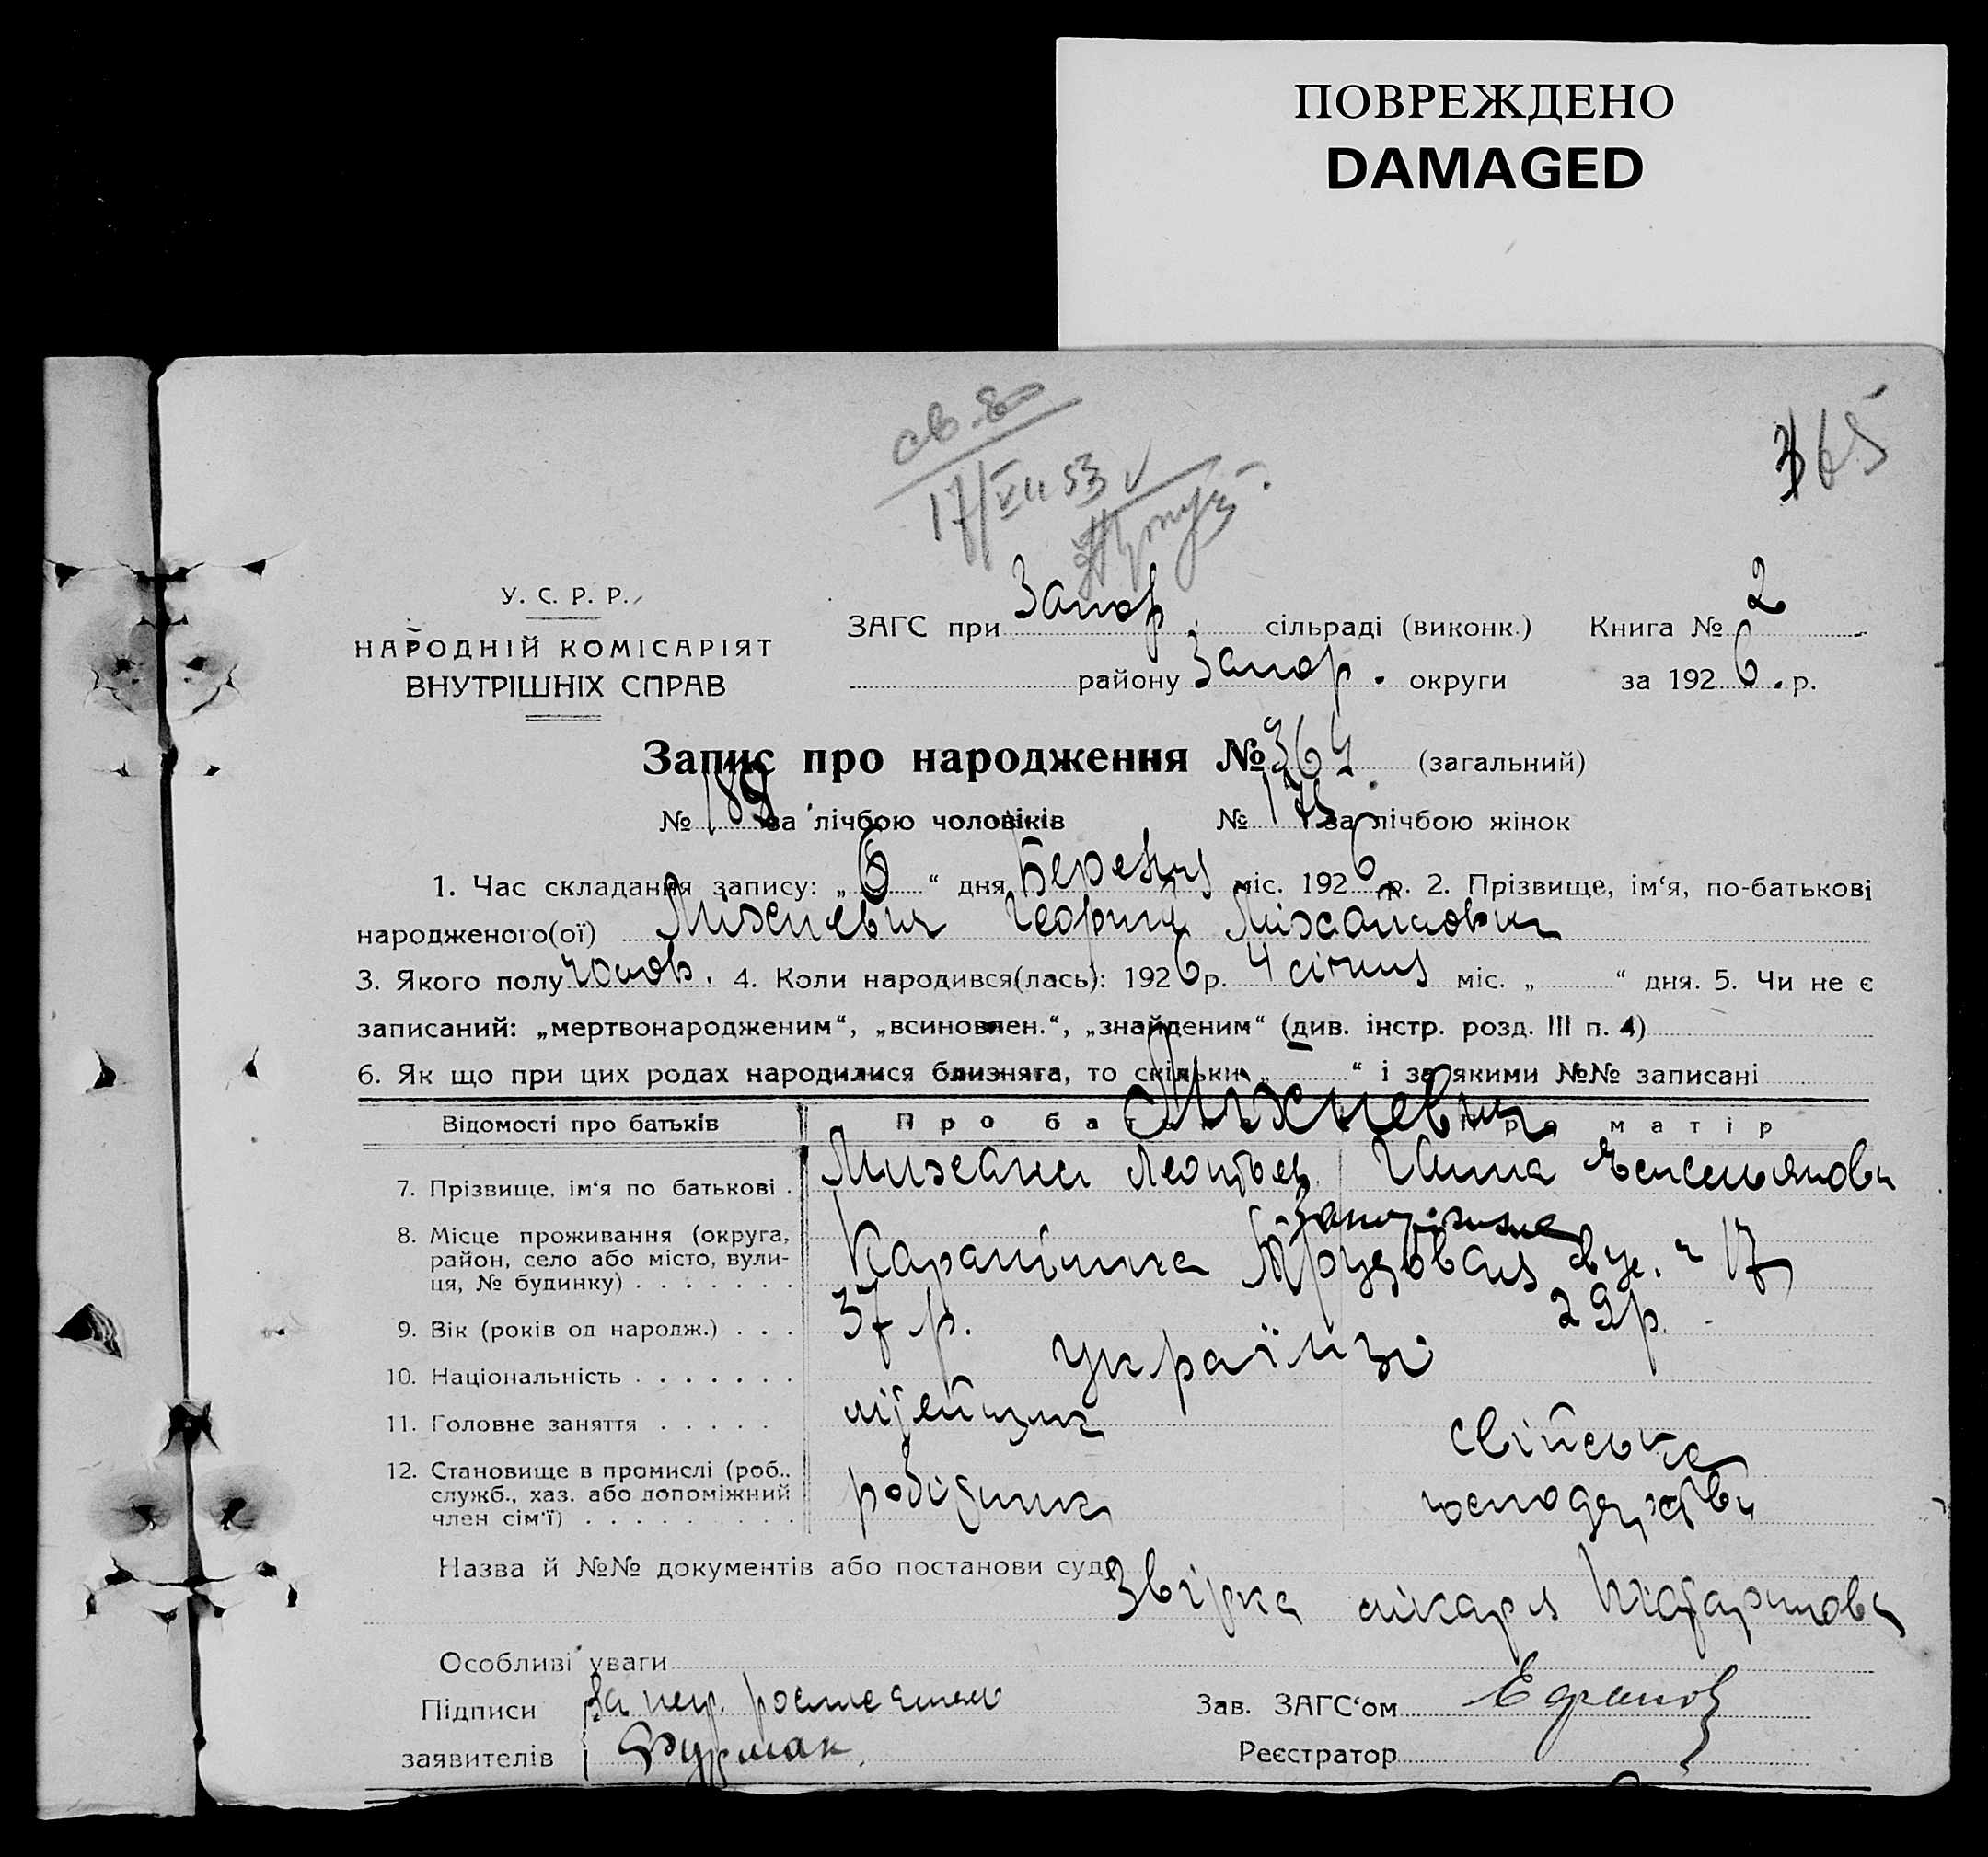 ПОВРЕЖДЕНО
DAMAGED
365
17/VII 53
У. С. Р. Р.
НАРОДНІЙ КОМІСАРІЯТ
ВНУТРІШНІХ СПРАВ
ЗАГС при Запор. сільраді (виконк.) Книга № 2
району Запор. округи за 1926 р.
Запис про народження № 364 (загальний)
№ 189 за лічбою чоловіків № 175 за лічбою жінок
1. Час складання запису: „6“ дня Березня міс. 1926 р. 2. Прізвище, ім‘я, по-батькові
народженого(ої) Міхневич Георгий Міхайлович
3. Якого полу чолов. 4. Коли народився(лась): 1926 р. 4 січня міс. „ “ дня. 5. Чи не є
записаний: „мертвонародженим“, „всиновлен.“, „знайденим“ (див. інстр. розд. III п. 4)
6. Як що при цих родах народилися близнята, то скільки „ “ і за якими №№ записані
Відомості про батьків Про бат Міхневич матір
7. Прізвище, ім'я по батькові . Михаил Леонтьев. Ганна
8. Місце проживання (округа, Запоріжжя
район, село або місто, вули- Карантинка Трудовая вул. 17
ця, № будинку) . . . . . . .
9. Вік (років од народж.) . . . 37 р. 29 р.
10. Національність . . . . . . . українці
11. Головне заняття . . . . . свійське
12. Становище в промислі (роб., робітник господарство
служб., хаз. або допоміжний
член сім'ї) . . . . . . . . .
Назва й №№ документів або постанови суду Звірка лікаря
Особливі уваги
Підписи Зав. ЗАГС‘ом
заявителів Фурман Реєстратор